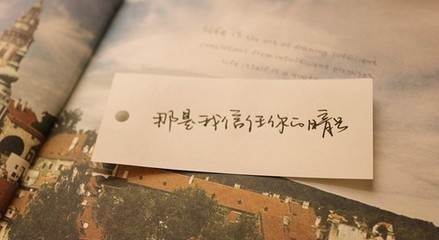 Life is the art of drawing sufficient
conclusions from insufficient premises
Life itself is a
那是我信任你的